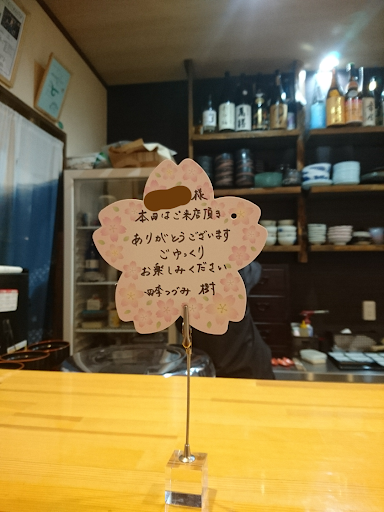 様
本日はご来店頂き
ありがとうございます
ごゆっくり
お楽しみください
四季つづみ 樹